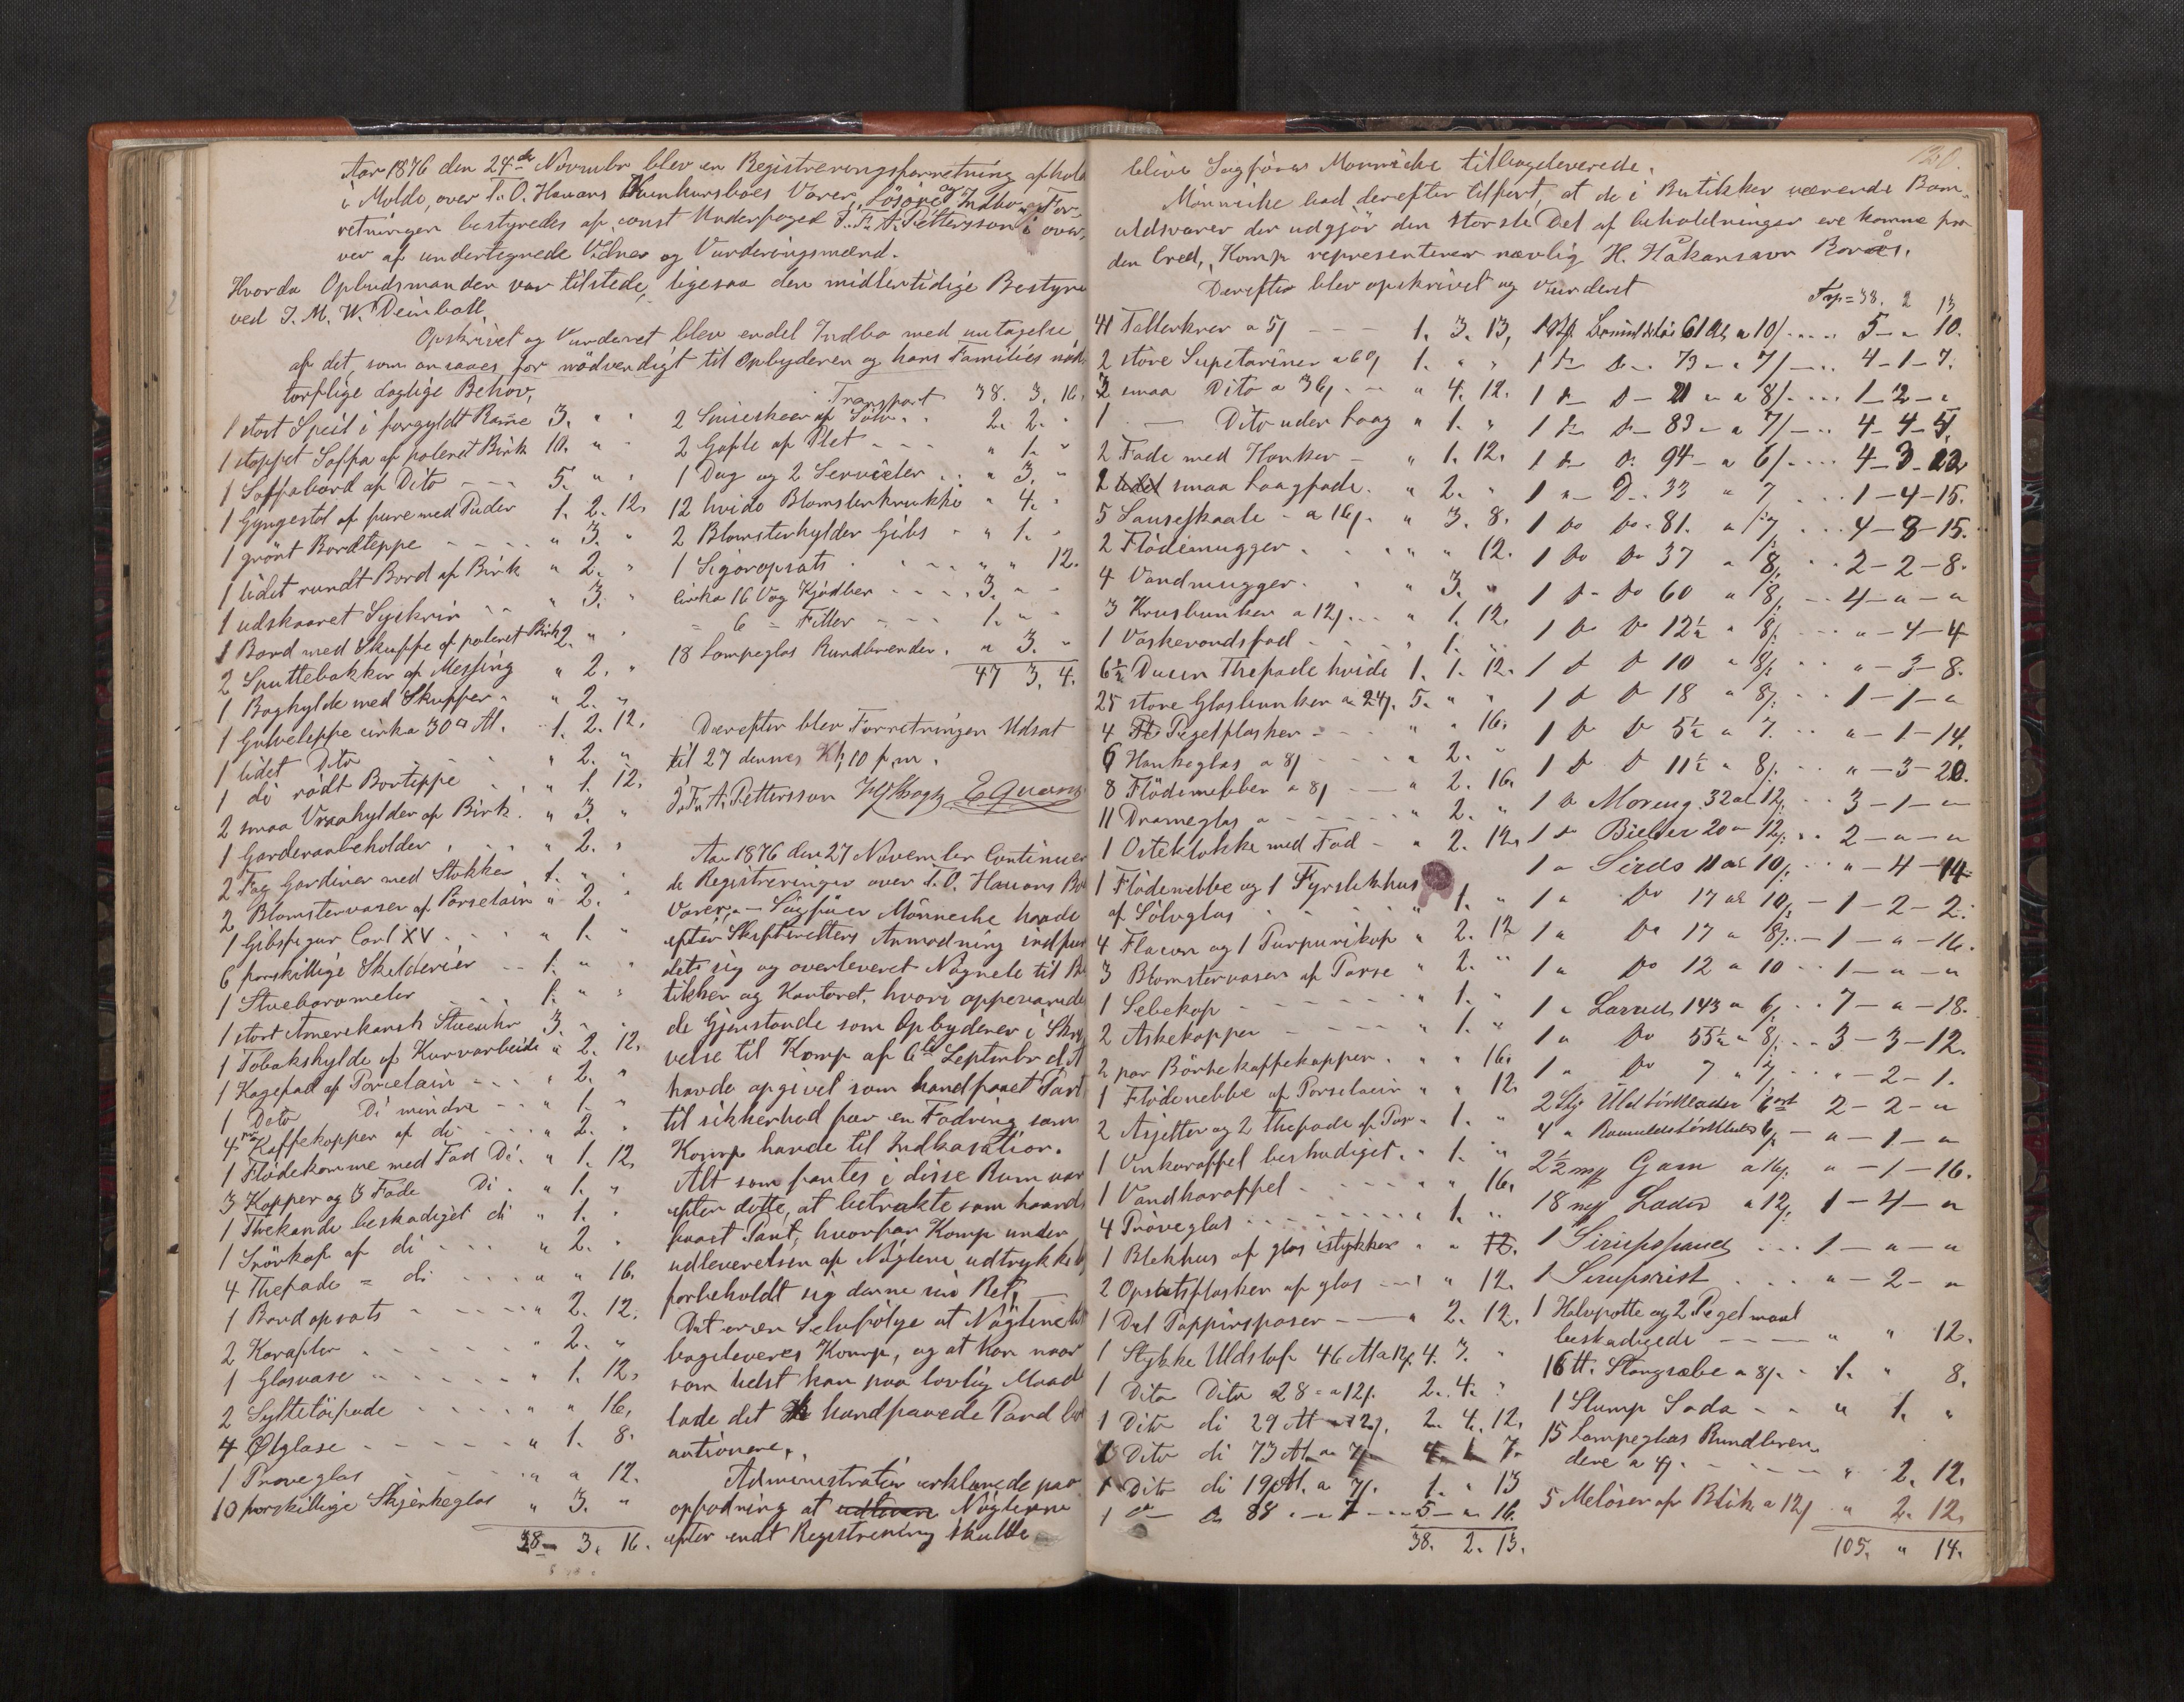 Aar 1876 den 24de Novembr blev en Registreringsforretning afhold
i Molde, over T. O. Havans Varer, Lösöre og Indbo. For-
retningen bestyredes af const Underfoged J. F. A. Pettersson i over,
vær af undertegnede Vidner og Vurderingsmænd.
Hvorda Opbudsmanden var tilstede, ligesaa den midlertidige Bestyre
ved J. M. W. Deinboll.
Opskrivet og Vurderet blev endel Indbo med untagelse
af det, som ansaaes for nödvendigt til Opbyderen og hans Families nöd
törftige daglige Behov,
1 stort Speil i forgyldt Rame 3. " "
1 stoppet Soffa af poleret Birk 10. " "
1 Soffabord af Dito - - - 5. " "
1 Gyngestol af fure med Puder 1. 2. 12.
1 grönt Bordteppe - - - " 3. "
1 lidet rundt Bord af Birk " 2. "
1 udskaaret Syskrin " 3. "
1 Bord med Skuffe af poleret Birk 2. " "
2 Sputtebakker af Messing " 2. "
1 Boghylde med Skuffer " 2. "
1 Gulvteppe cirka 30 Al. 1. 2. 12.
1 lidet Dito " 2. "
1 di rödt Borteppe " 1. 12.
2 smaa Vraahylder af Birk. " 3. "
1 Garderaubeholder " 2. "
2 Fag Gardiner med Stokke 1. " "
2 Blomstervaser af Porselain " 2. "
1 Gibsfigur Carl XV " 1. "
6 forskillige Skilderier 1. " "
1 Stuebarometer 1. " "
1 stort Amerikansk Stueuhr 3. " "
1 Tobakshylde af Kurvarbeide " 2. 12.
1 Kagefad af Porcelain " 2. "
1 Doto Di mindre " 1. "
4 Kaffekopper af di " 2. "
1 Flödekomme med Fad Di. " 1. 12.
3 Kopper og 3 Fade Di. " 1. "
1 Thekande beskadiget di " 1. "
1 af di " 2. "
4 Thefade = di " " 16.
1 Bordopsats " 2. 12.
2 Karafler " 2. "
1 Glasvase " 1. 12.
2 Syltetöifade " " 16.
4 Ølglase " 1. 8.
1 Pröveglas " " 12.
10 forskillige Skjenkeglas " 3. "
38 - 3. 16.
Transport 38. 3. 16.
2 af Sölv 2. 2. "
2 Gafle af Plet " 1. "
1 Dug og 2 Servieter " 3. "
12 hvide Blomsterkrukke " 4. "
2 Blomsterhylder Gibs " 1. "
1 Sigaropsats " " 12.
cirka 16 Vog Kjödben 3. " "
= 6 = Filler 1. " "
18 Lampeglas Rundbrender. " 3. "
47 3. 4.
Derefter blev Forretningen Udsat
til 27 dennes Kl, 10 f. m.
J. F. A. Pettersson
Aar 1876 den 27 November Continuer
de Registreringen over T. O. Havans Bo
Varer, - Sagförer Mönniche havde
efter Skifterettens Anmodning indfun
det sig og overleveret Nögnele til Bu
tikken og Kontoret, hvori oppevarende
de Gjenstande som Opbyderen i Skri
velse til Komp af 6te Septembr
havde opgivet som handfaaet Pant
til sikkerhed for en Fodring som
Komp havde til Indkasation.
Alt som fantes i disse Rum var
efter dette, at betrakte som haand
faaet Pant, hvorfor Komp under
udleverelsen af Nöglene udtrykkelig
forbeholdt sig denne sin Ret,
Det er en Selvfölge at Nöglene til
bageleveres Komp, og at Kan naar
som helst kan paa lovlig Maade
lade det handfaaede Pand
autionere,
Administrator erklærede paa
opfodring at udlever Nöglerne
efter endt Registrering skulde
130.
blive Sagförer Mönniche tilbageleverede.
Mönniche bad derefter tilfört, at de i Butikken værende Bom-
uldsvarer der udgjör den störste Del af beholdningen ere komne fra
den Cred, Komp representerer nævnlig H. Håkansson Borås.
Derefter blev opskrivet og vurderet
41 Tallerkner a 5/ - - - 1. 3. 13,
2 store Supetariner a 60/ 1. " "
3 smaa Dito a 36/ " 4. 12.
1 — Dito uden Laag " 1. "
2 Fade med Hanker " 1. 12.
2 smaa Laagfade. " 2. "
5 Sauseskaale - a 16/. " 3. 8.
2 Flödemugger " " 12.
4 Vandmugger. " 3. "
3 Krusbunker a 12/ " 1. 12.
1 Vaskevandsfad " 1. "
6½ Dusin Thefade hvide 1. 1. 12.
25 store Glasbunker a 24/. 5. " "
4 Pegelflasker " " 16.
6 Hankeglas a 8/ " 2. "
8 Flödenebber a 8/ " 2. 16.
11 Drameglas a " 2. "
1 Osteklokke med Fad " 2. 12.
1 Flödenebbe og 1 Fyrstikhus
af Sölvglas " 1. "
4 Flacon og 1 Purpurikop " 2. 12
3 Blomstervaser af Porse " 2. "
1 Sebekop " 1. "
2 Askekopper " 1. "
2 par Börnekaffekopper. " " 16.
1 Flödenebbe af Porselain " " 12.
2 Asjetter og 2 Thefade af Por " 1. "
1 Vinkaraffel beskadiget. " 1. "
1 Vandkaraffel " " 16.
4 Pröveglas " 1. "
1 Blekhus af glas istykker " " 12.
2 Opsatsflasker af glas " " 12.
1 Del Pappirsposer " 2. 12.
1 Stykke Uldstof 46 Al a 12/. 4. 3. "
1 Dito Dito 28 - a 12/. 2. 4. "
1 Dito di 29 Al a 12/. 2. 4. 12.
1 Dito di 73 Al. a 7/. 4. 1. 7.
1 Dito di 19 Al. a 7/. 1. " 13
1 88 " - 7 - 5 - " 16.
38. 2. 13.
Trp = 38. 2 13
61 Al, a 10/ 5 - " 10.
1 D - 73 - a 7/ 4 - 1 - 7.
1 D - 21 - a 8/ 1 - 2 - "
1 D - 83 - a 7/ 4 - 4 - 5.
1 D. 94 - a 6/ 4 - 3 - 22
1 D.. 33 " 7 1 - 4 - 15.
1 Do Do - 81. a 7/. 4 - 3 - 15.
1 Do Do 37 a 8/. 2 - 2 - 8.
1 D - Do 60 " 8/. 4 - " - "
1 Do Do 12½ " 8/. " - 4 - 4
1 D D 10 " 8/: " - 3 - 8.
1 D D 18 " 8/. 1 - 1 - "
1 D D 5½ a 7. " - 1 - 14.
1 D D 11½ a 8/. " - 3 - 20.
1 D Moreng. 32 al 12/. 3 - 1 - "
1 D 20 - 12/. 2 - " - "
1 " Sirds 11 al 10/. " - 4 - 14
1 " Do 17 al 10/. 1 - 2 - 2.
1 " Do 17 a 8/. 1 - " - 16.
1 " Do 12 a 10 1 - " - "
1 " Larred 143 a 6/. 7 - " - 18.
1 " Do 55½ a 8/. 3 - 3 - 12.
1 " Do 7 " 7/. " - 2 - 1.
2 Uldtörklæder 2 - 2 - "
4 " Bomuldstörklæder " - 1 - "
2½ Garn a 16/. " - 1 - 16.
18 a 12/. 1 - 4 - "
1 Sirupspand 1 - " - "
1 Sirupsrist " - 2 - "
1 Halvpotte og 2 Pegelmaal
beskadigede " " 12.
16 tt. Stangsæbe a 8/. 1. " 8.
1 Slump Soda " 1. "
15 Lampeglas Rundbren
dere a 4/. " 2. 12.
5 Melöser af Blik a 12/ " 2. 12.
105. " 14.